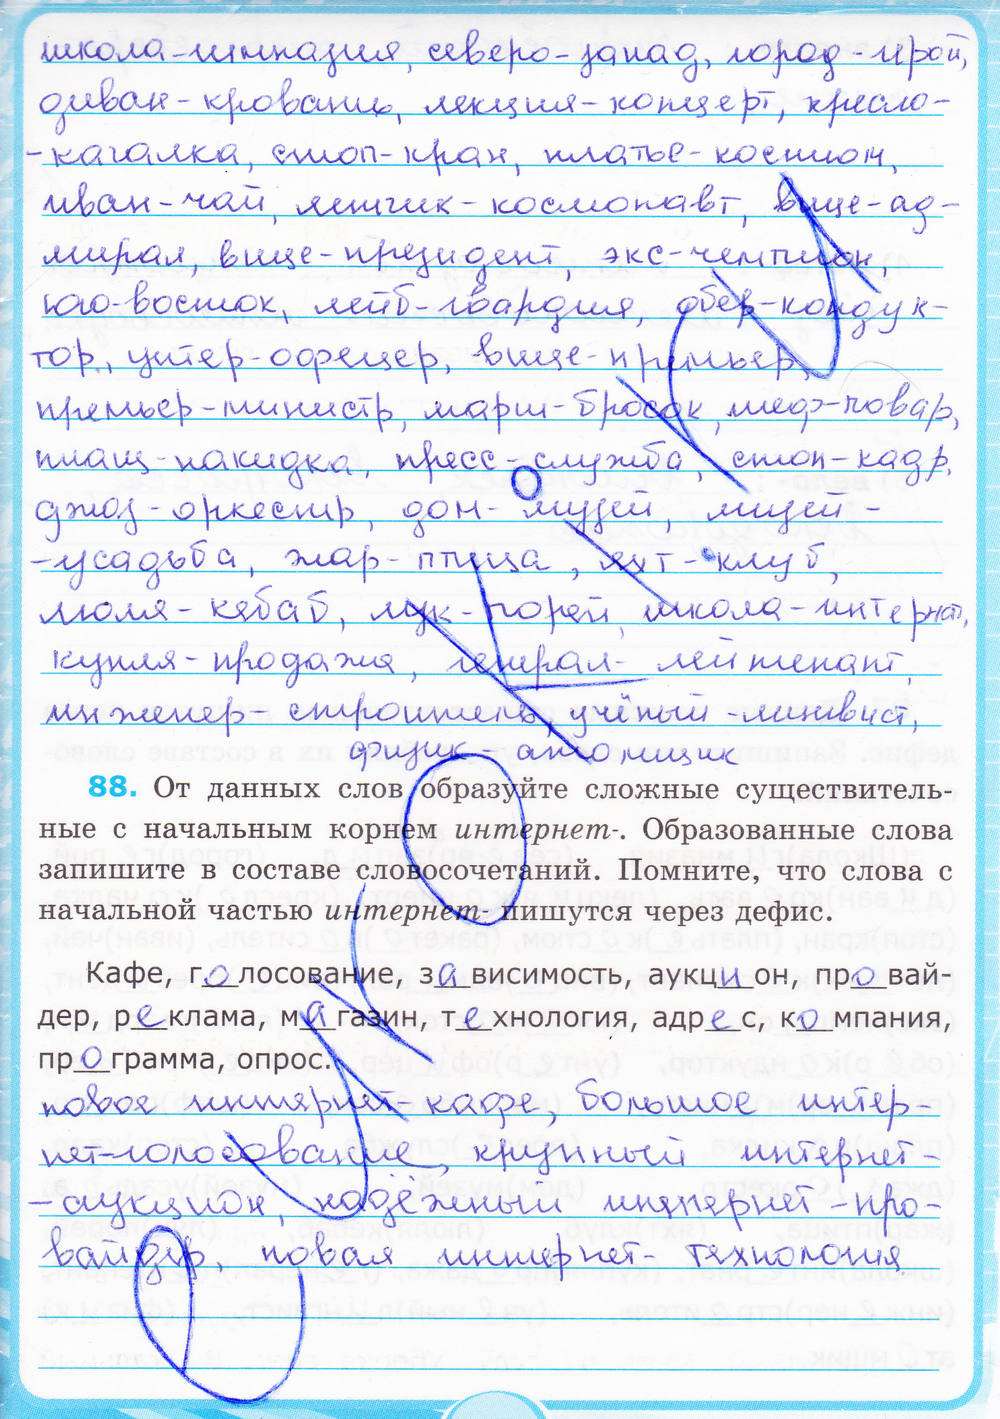 школа-гимназия, северо-запад, город-герой,
диван-кровать, лекция-концерт, кресло-
-качалка, стоп-кран, платье-костюм,
иван-чай, летчик-космонавт, вице-ад-
мирал, вице-президент, экс-чемпион,
юго-восток, лейб-гвардия, обер-кондук-
тор, унтер-офицер, вице-премьер,
премьер-министр, марш-бросок, шеф-повар,
плащ-накидка, пресс-служба, стоп-кадр,
джаз-оркестр, дом-музей, музей-
-усадьба, жар-птица, яхт-клуб,
люля-кебаб, лук-порей, школа-интернат,
купля-продажа, генерал-лейтенант,
инженер-строитель, учёный-лингвист,
физик-атомщик
88. От данных слов образуйте сложные существитель-
ные с начальным корнем интернет-. Образованные слова
запишите в составе словосочетаний. Помните, что слова с
начальной частью интернет- пишутся через дефис.
Кафе, голосование, зависимость, аукцион, провай-
дер, реклама, магазин, технология, адрес, компания,
программа, опрос.
новое интернет-кафе, большое интер
нет-голосование, крупный интернет-
-аукцион, надёжный интернет-про-
вайдер, новая интернет-технология